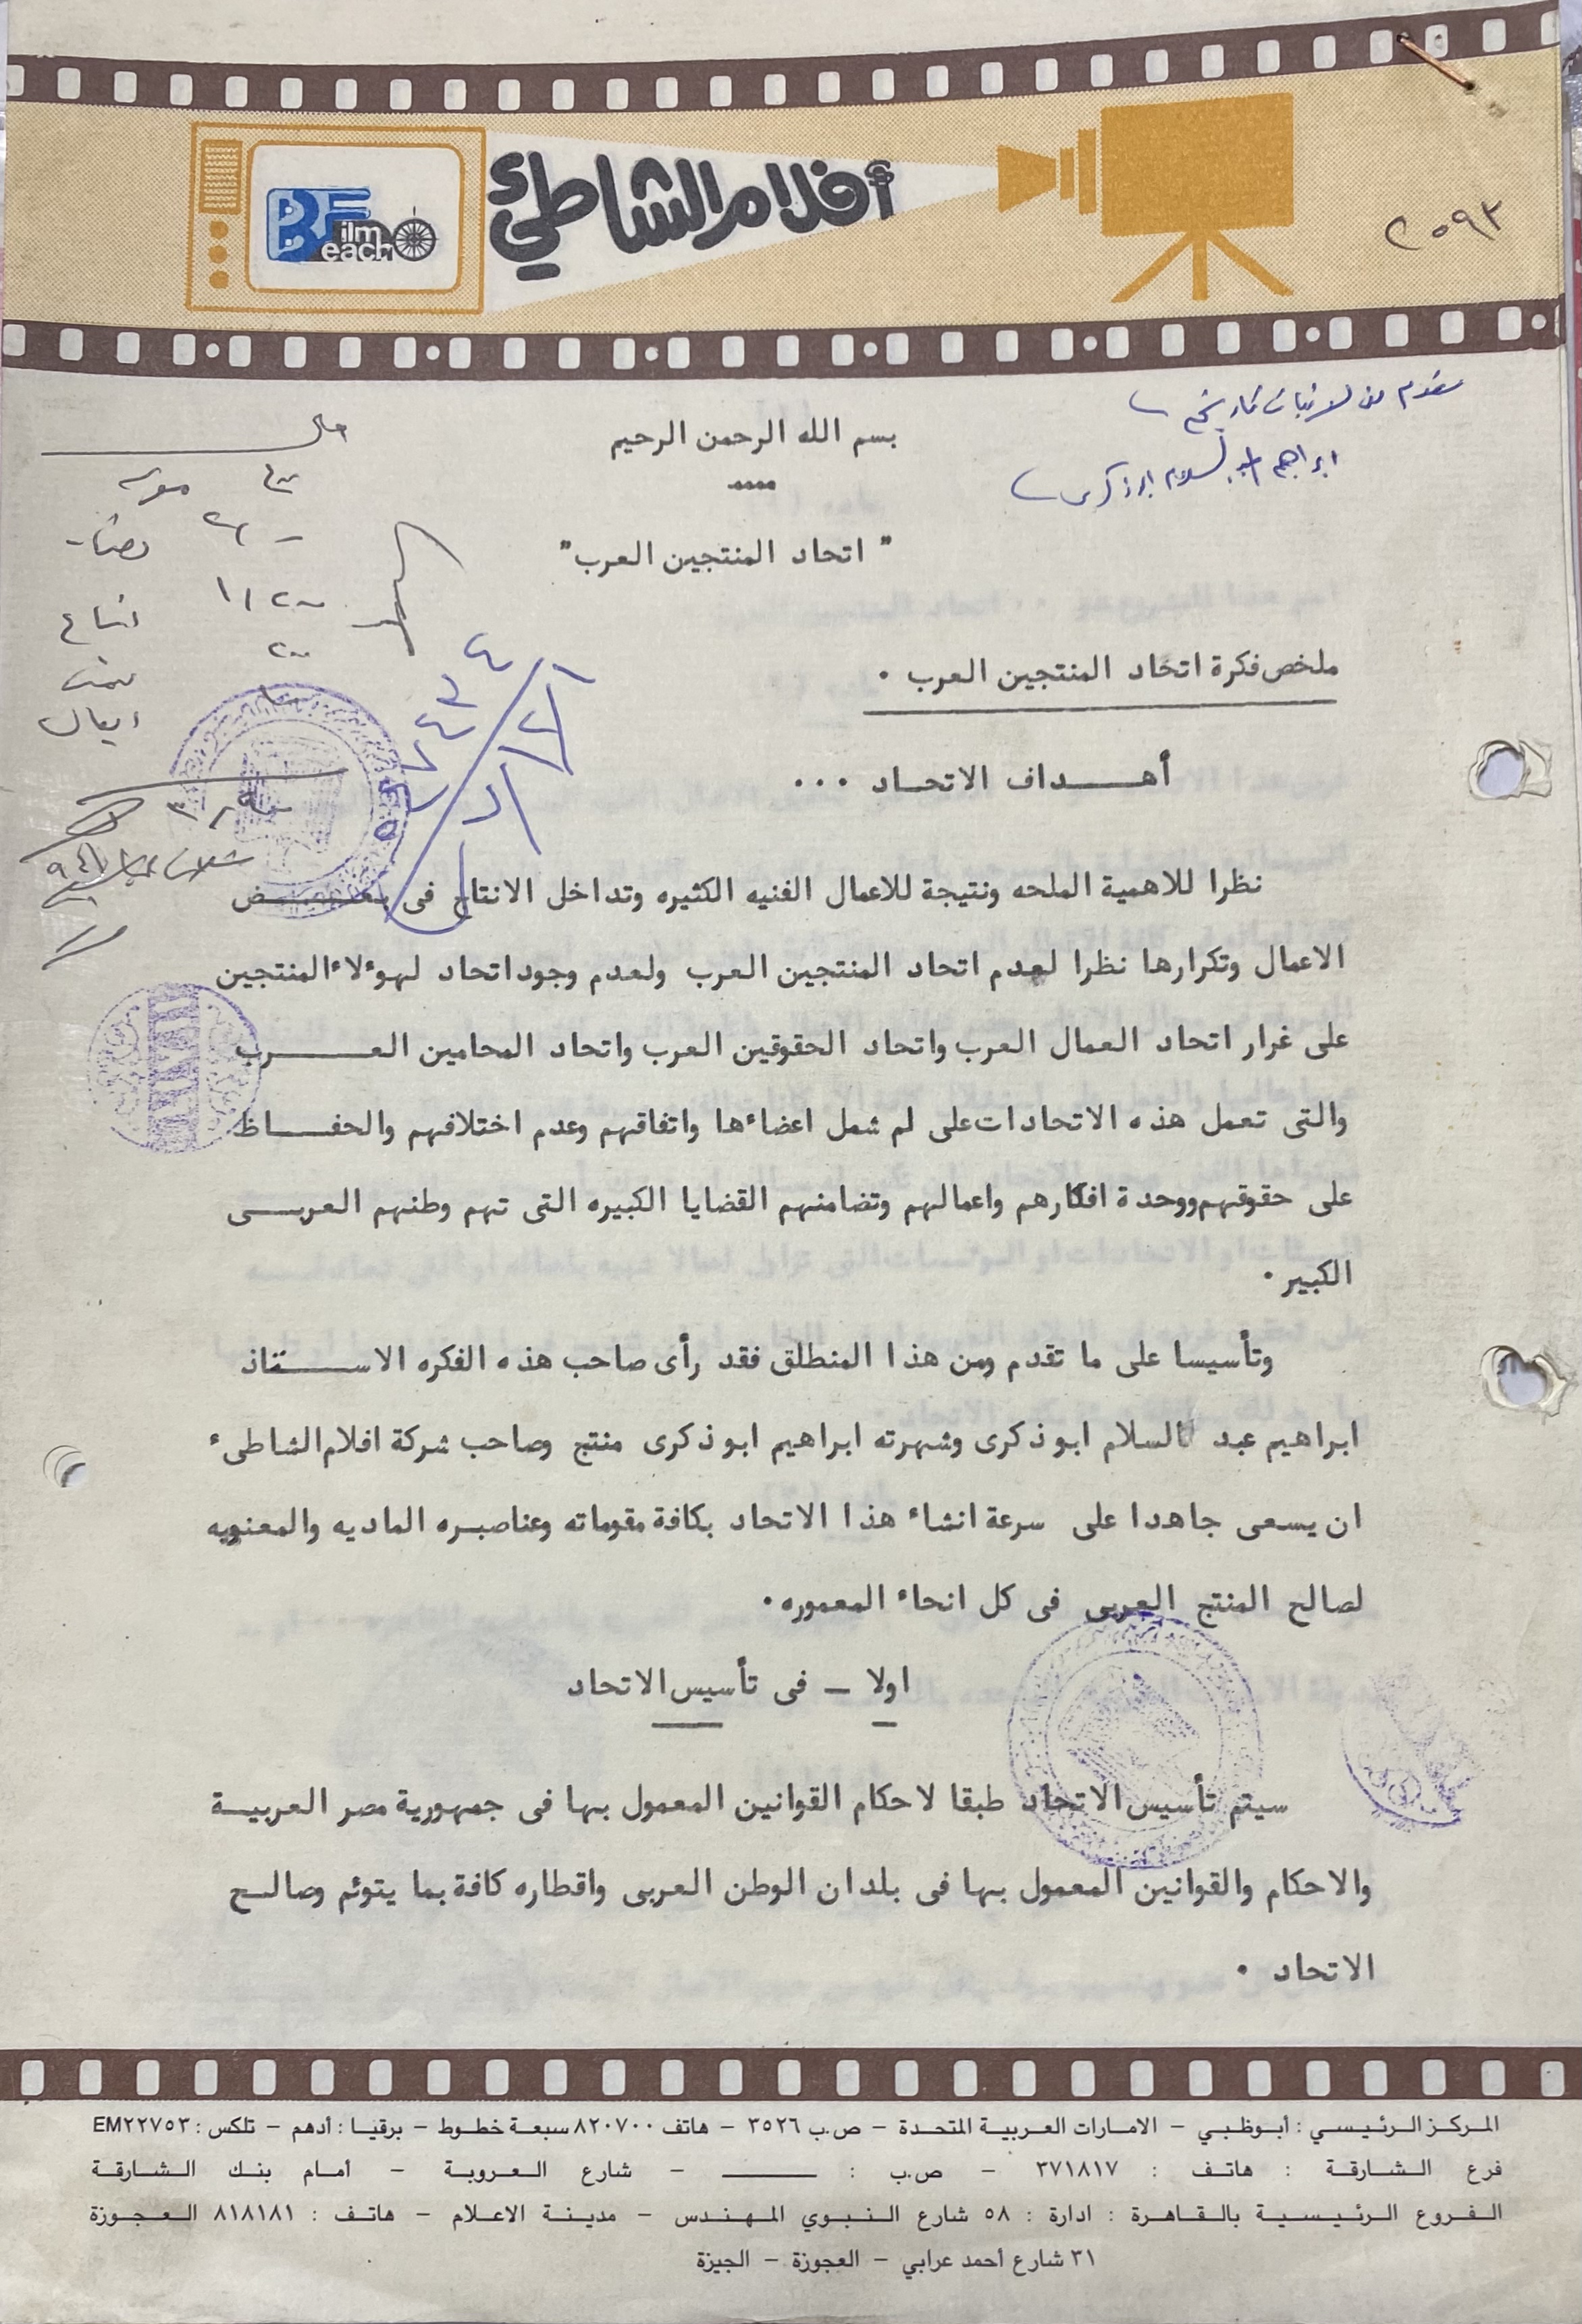 أفلام الشاطئ
BF
ilm
each
٢٥٩٣
مقدم من لاثبات تاريخه
ابراهيم عبد السلام ابو ذكرى
بسم الله الرحمن الرحيم
" اتحاد المنتجين العرب"
ملخص فكرة اتحاد المنتجين العرب ٠
أهـــداف الاتحـاد ٠٠٠
نظرا للاهمية الملحه ونتيجة للاعمال الفنيه الكثيره وتداخل الانتاج فى بعـــــض
الاعمال وتكرارها نظرا لعدم اتحاد المنتجين العرب ولعدم وجود اتحاد لهوءلاء المنتجين
على غرار اتحاد العمال العرب واتحاد الحقوقين العرب واتحاد المحامين العـــــرب
والتى تعمل هذه الاتحادات على لم شمل اعضاءها واتفاقهم وعدم اختلافهم والحفـــاظ
على حقوقهم ووحدة افكارهم واعمالهم وتضامنهم القضايا الكبيره التى تهم وطنهم العربـــى
الكبير ٠
وتأسيسا على ما تقدم ومن هذا المنطلق فقد رأى صاحب هذه الفكره الاســــتاذ
ابراهيم عبد السلام ابو ذكرى وشهرته ابراهيم ابو ذكرى منتج وصاحب شركة افلام الشاطىء
ان يسعى جاهدا على سرعة انشاء هذا الاتحاد بكافة مقوماته وعناصره الماديه والمعنويه
لصالح المنتج العربى فى كل انحاء المعموره ٠
اولا - فى تأسيس الاتحاد
سيتم تأسيس الاتحاد طبقا لاحكام القوانين المعمول بها فى جمهورية مصر العربيـــة
والاحكام والقوانين المعمول بها فى بلدان الوطن العربى واقطاره كافة بما يتوئم وصالــح
الاتحاد ٠
المركز الرئيسي : أبوظبي - الامارات العربية المتحدة - ص.ب ٣٥٢٦ - هاتف ٨٢٠٧٠٠ سبعة خطوط - برقيا : أدهم - تلكس : EM٢٢٧٥٣
فرع الشارقة : هاتف : ٣٧١٨١٧ - ص.ب : ــــــــ - شارع العروبة - أمام بنك الشارقة
الفروع الرئيسية بالقاهرة : ادارة : ٥٨ شارع النبوي المهندس - مدينة الاعلام - هاتف : ٨١٨١٨١ العجوزة
٣١ شارع أحمد عرابي - العجوزة - الجيزة